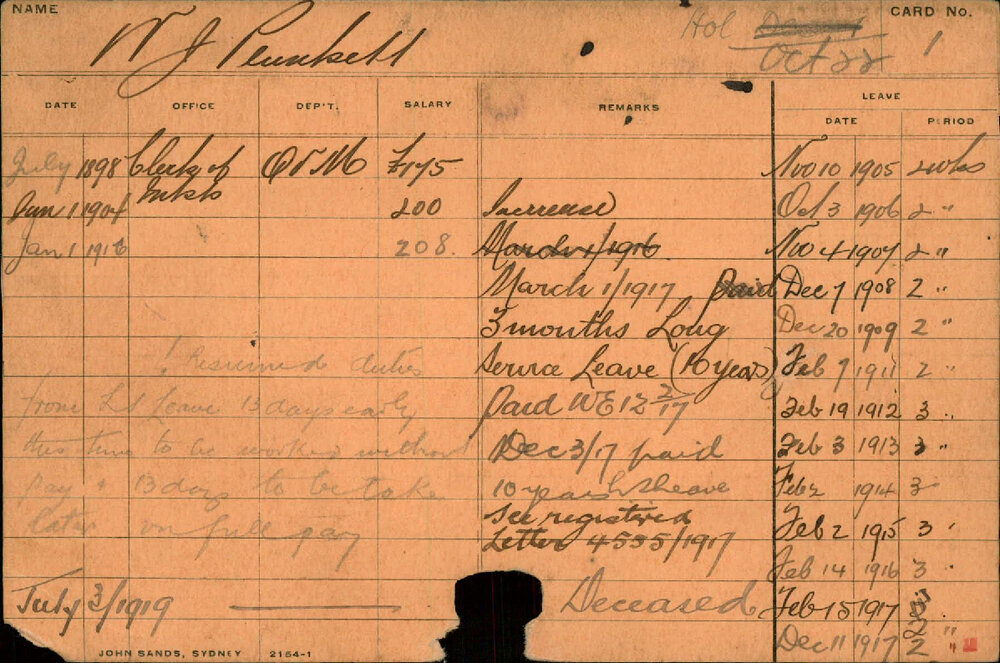 NAME W J Plunkett Hol Oct 22 CARD No. 1
DATE OFFICE DEP'T. SALARY REMARKS LEAVE
DATE PERIOD
July 1898 Clerk of Mkts QVM £175 Nov 10 1905 2 wks
Jan 1 1904 200 Increase Oct 3 1906 2 "
Jan 1 1916 208. March 1/1916. Nov 4 1907 2 "
March 1/1917 paid Dec 7 1908 2 "
3 months Long Dec 20 1909 2 "
! Resumed duties Service Leave (10 years) Feb 7 1911 2 "
from LS Leave 13 days early paid WE 12/2/17 Feb 19 1912 3 "
this time to be worked without Dec 3/17 paid Feb 3 1913 3 "
pay & 13 days to be take 10 years leave Feb 2 1914 3 "
later on full pay See registered Feb 2 1915 3 "
Letter 4535/1917
Feb 14 1916 3 "
July 3/1919 Deceased Feb 15 1917
Dec 11 1917 2 "
JOHN SANDS, SYDNEY 2154-1